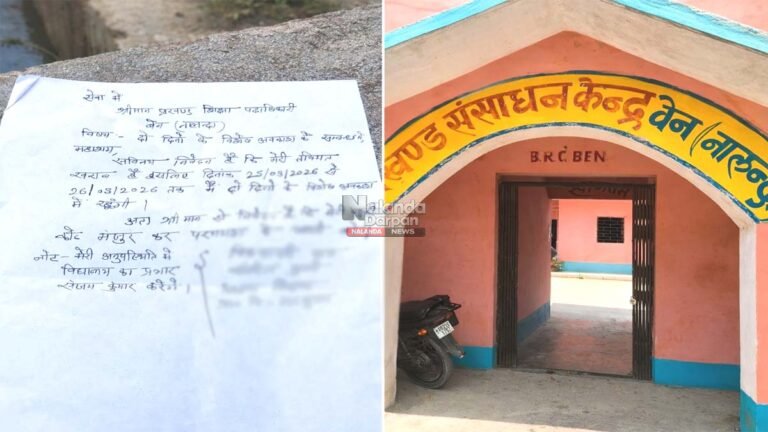 सेवा में
श्रीमान प्रखण्ड शिक्षा पदाधिकारी
बेन (नालन्दा)
विषय:- दो दिनों के विशेष अवकाश के सम्बन्ध में
महाशय,
सविनय निवेदन है कि मेरी तबियत
खराब है इसलिए दिनांक 25/03/2026 से
26/03/2026 तक मैं दो दिनों के विशेष अवकाश
में रहूँगी।
अतः श्रीमान से कि
मंजूर कर
नोट:- मेरी अनुपस्थिति में
विद्यालय का प्रभार
संजय कुमार करेंगे।
Nalanda
Darpan
NALANDA NEWS
खण्ड संसाधन केन्द्र वेन (नालन्द
B.R.C BEN